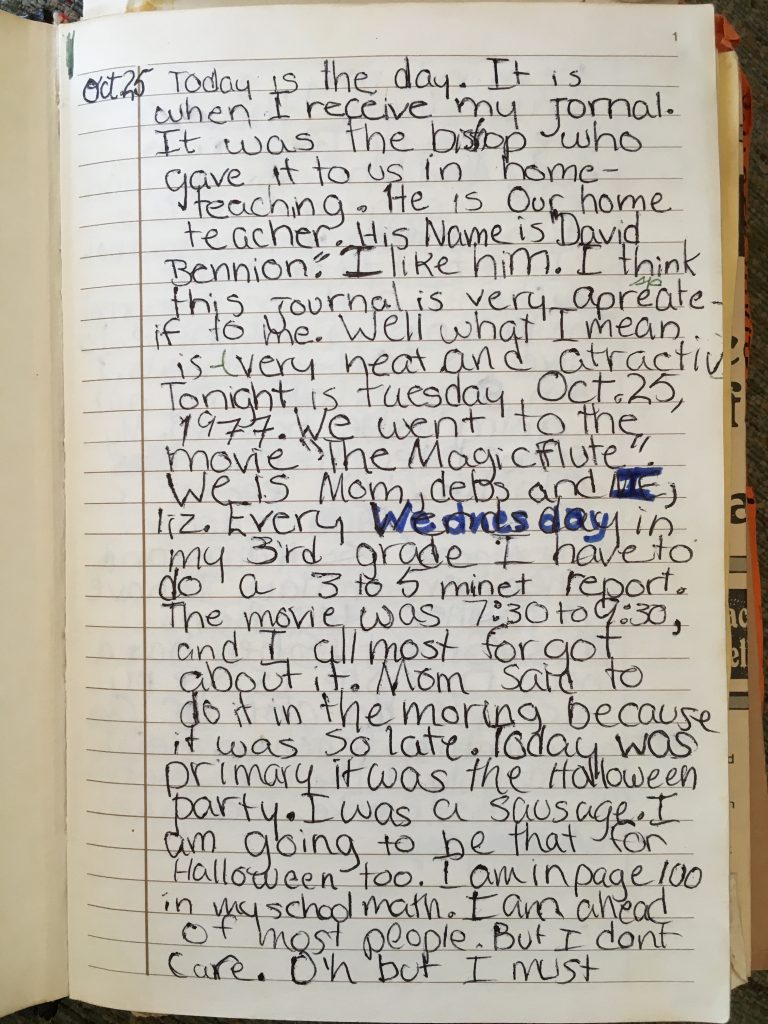 1
Oct.25 Today is the day. It is
when I receive my jornal.
It was the bishop who
gave it to us in home-
teaching. He is Our home
teacher. His Name is "David
Bennion." I like him. I think
this journal is very apreate-
if to me. Well what I mean
is very neat and atractiv
Tonight is tuesday, Oct.25,
1977. We went to the
movie "The Magic flute".
We is Mom, debs and
liz. Every Wednesday in
my 3rd grade I have to
do a 3 to 5 minet report.
The movie was 7:30 to 9:30,
and I all most forgot
about it. Mom said to
do it in the moring because
it was so late. Today was
primary it was the Halloween
party. I was a sausage. I
am going to be that for
Halloween too. I am in page 100
in my school math. I am ahead
of most people. But I dont
care. Oh but I must